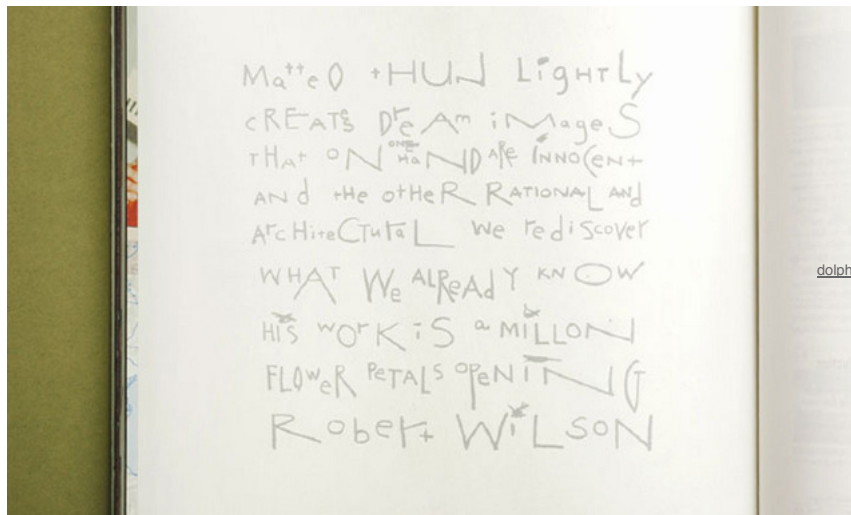 MatteO tHUN LigHTLy
cREATS DreAm iMageS
tHAt ONE HAND ARE INNOCENt
AN d tHe otHeR RATIONAL AND
ArcHiteCTuraL We rediScover
WHAT We ALReAdY KNOW
HiS WOrK iS a MiLLON
FLOWeR PeTALS OPeNING
RobeRt WiLSON
dolph